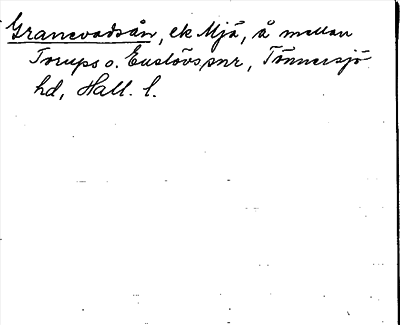 Granevadsån, ek Mjä, å mellan
Torups o. Enslövs snr, Tönnersjö
hd, Hall. l.